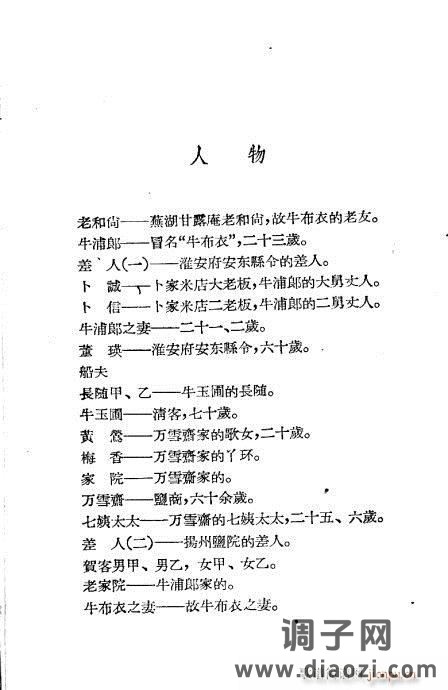 人 物
老和尙——蕪湖甘露庵老和尙,故牛布衣的老友。
牛浦郎——冒名“牛布衣”,二十三歲。
差 人(一)——淮安府安东縣令的差人。
卜 誠——卜家米店大老板,牛浦郎的大舅丈人。
卜 信——卜家米店二老板,牛浦郎的二舅丈人。
牛浦郎之妻——二十一、二歲。
董 瑛——淮安府安东縣令,六十歲。
船夫
長随甲、乙——牛玉圃的長随。
牛玉圃——淸客,七十歲。
黃 鶯——万雪齋家的歌女,二十歲。
梅 香——万雪齋家的丫环。
家 院——万雪齋家的。
万雪齋——鹽商,六十余歲。
七姨太太——万雪齋的七姨太太,二十五、六歲。
差 人(二)——揚州鹽院的差人。
賀客男甲、男乙,女甲、女乙。
老家院——牛浦郎家的。
牛布衣之妻——故牛布衣之妻。
调子网
www.diaozi.com